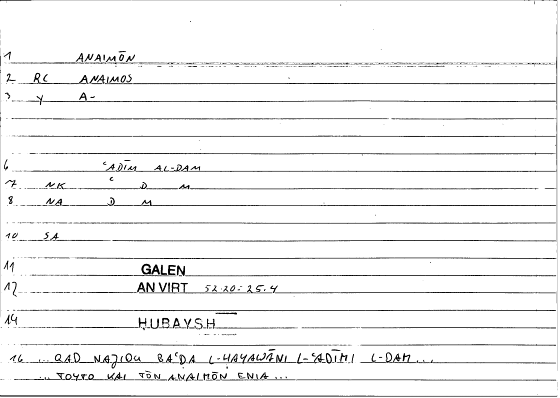 1 ANAIMŌN
2 RC ANAIMOS
3 Y A-
6 ʿADĪM AL-DAM
7 NK ʿ D M
8 NA D M
10 SA
11 GALEN
12 AN VIRT 52.20:25.4
14 HUBAYSH
16 ...QAD NAJIDU BAʿDA L-HAYAWĀNI L-ʿADĪMI L-DAM...
...TOYTO KAI TŌN ANAIMŌN ENIA...